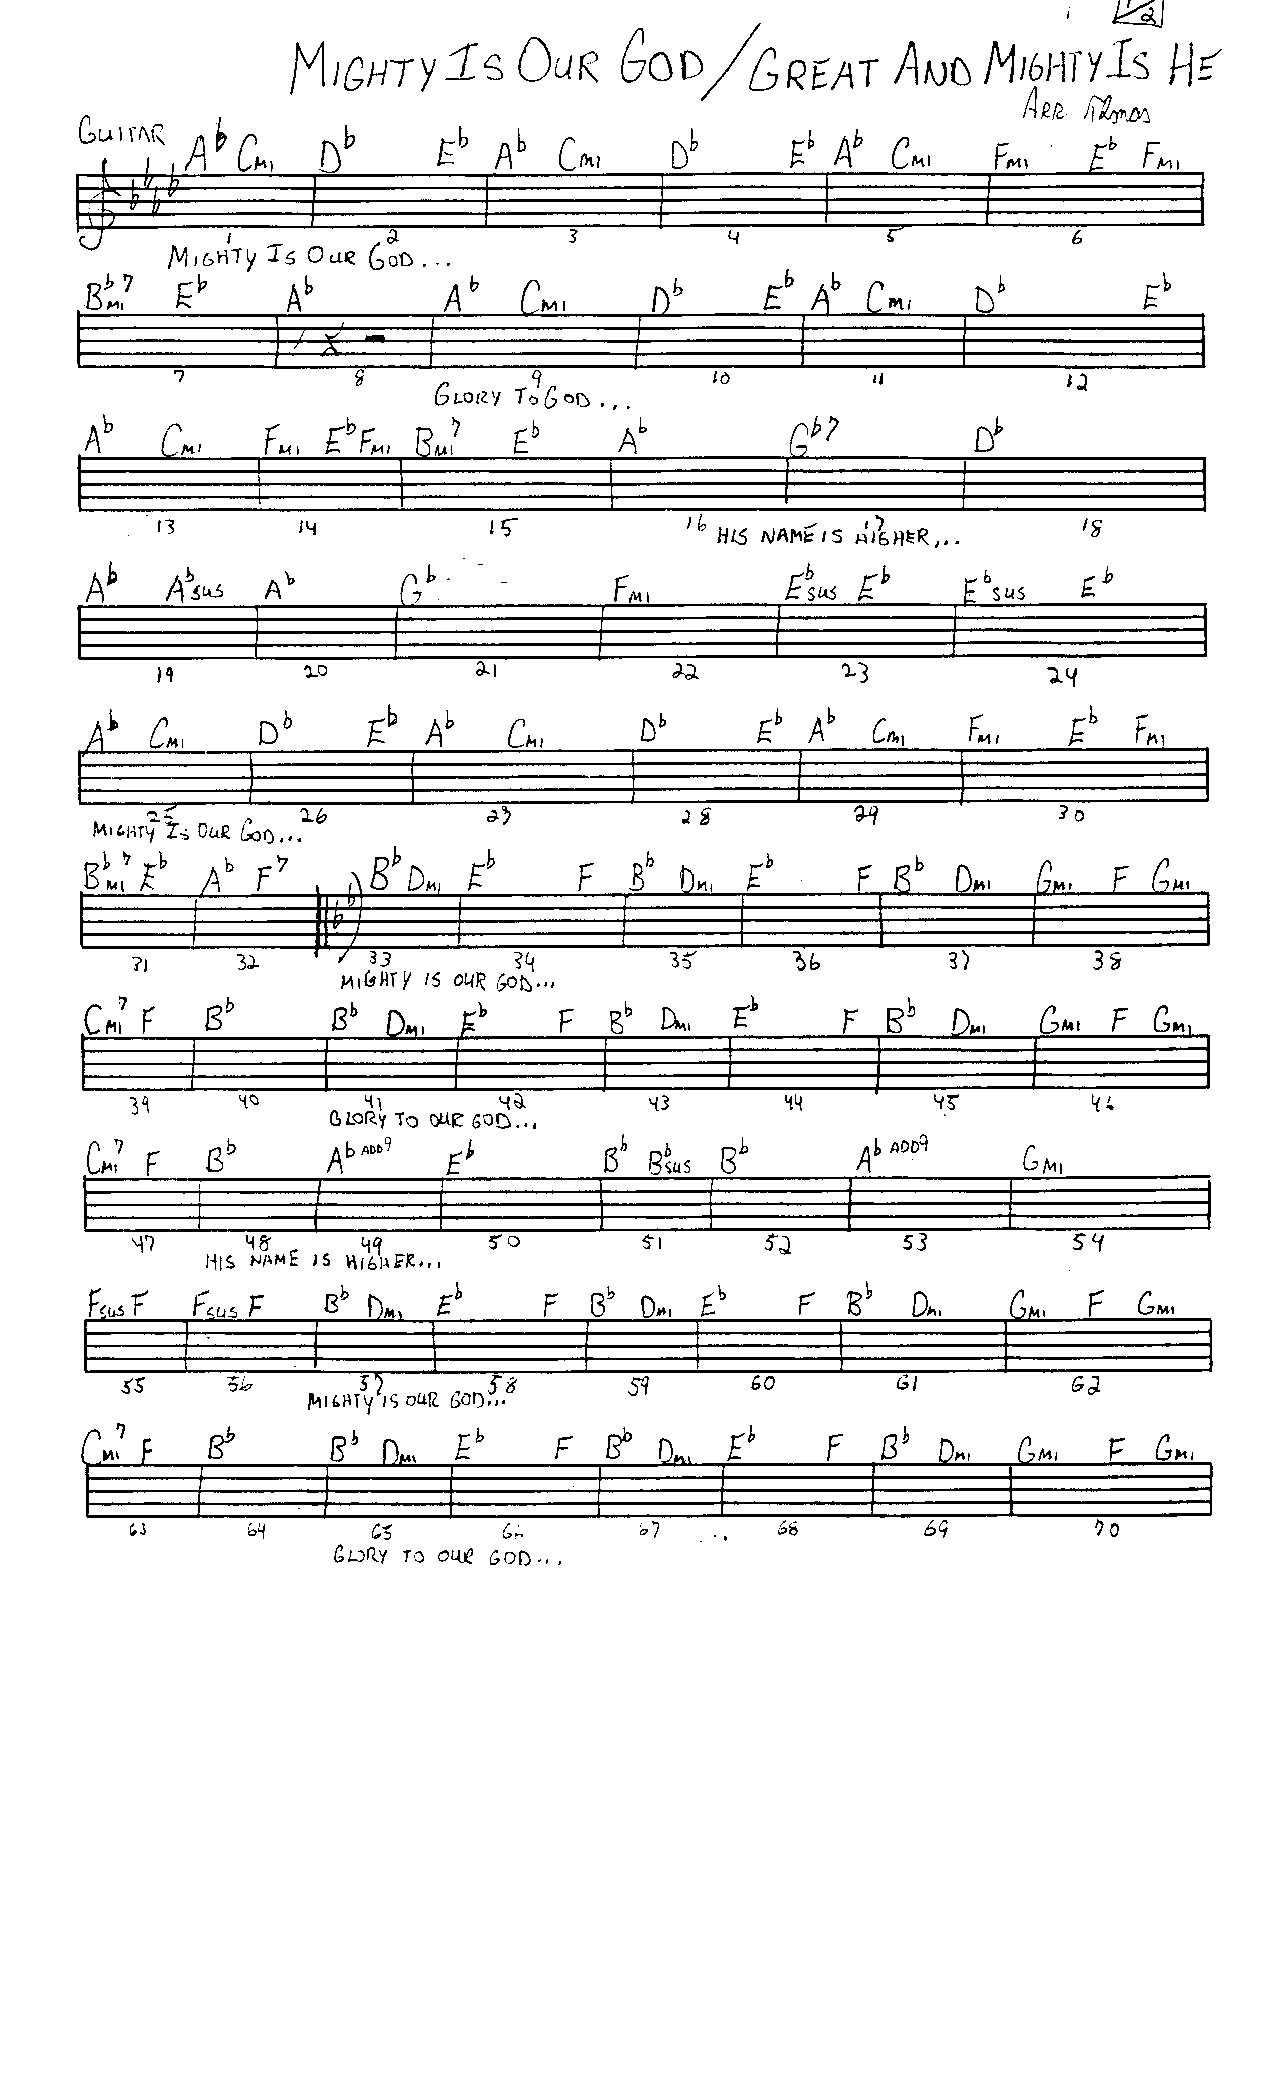 1/2
MIGHTY IS OUR GOD / GREAT AND MIGHTY IS HE
ARR
GUITAR
A♭ CMI D♭ E♭ A♭ CMI D♭ E♭ A♭ CMI FMI E♭ FMI
1 2 3 4 5 6
MIGHTY IS OUR GOD...
B♭MI7 E♭ A♭ A♭ CMI D♭ E♭ A♭ CMI D♭ E♭
7 8 9 10 11 12
GLORY TO GOD...
A♭ CMI FMI E♭ FMI BMI7 E♭ A♭ G♭7 D♭
13 14 15 16 17 18
HIS NAME IS HIGHER...
A♭ A♭SUS A♭ G♭ FMI E♭SUS E♭ E♭SUS E♭
19 20 21 22 23 24
A♭ CMI D♭ E♭ A♭ CMI D♭ E♭ A♭ CMI FMI E♭ FMI
25 26 27 28 29 30
MIGHTY IS OUR GOD...
B♭MI7 E♭ A♭ F7 B♭ DMI E♭ F B♭ DMI E♭ F B♭ DMI GMI F GMI
31 32 33 34 35 36 37 38
MIGHTY IS OUR GOD...
CMI7 F B♭ B♭ DMI E♭ F B♭ DMI E♭ F B♭ DMI GMI F GMI
39 40 41 42 43 44 45 46
GLORY TO OUR GOD...
CMI7 F B♭ A♭ADD9 E♭ B♭ B♭SUS B♭ A♭ADD9 GMI
47 48 49 50 51 52 53 54
HIS NAME IS HIGHER...
FSUS F FSUS F B♭ DMI E♭ F B♭ DMI E♭ F B♭ DMI GMI F GMI
55 56 57 58 59 60 61 62
MIGHTY IS OUR GOD...
CMI7 F B♭ B♭ DMI E♭ F B♭ DMI E♭ F B♭ DMI GMI F GMI
63 64 65 66 67 68 69 70
GLORY TO OUR GOD...